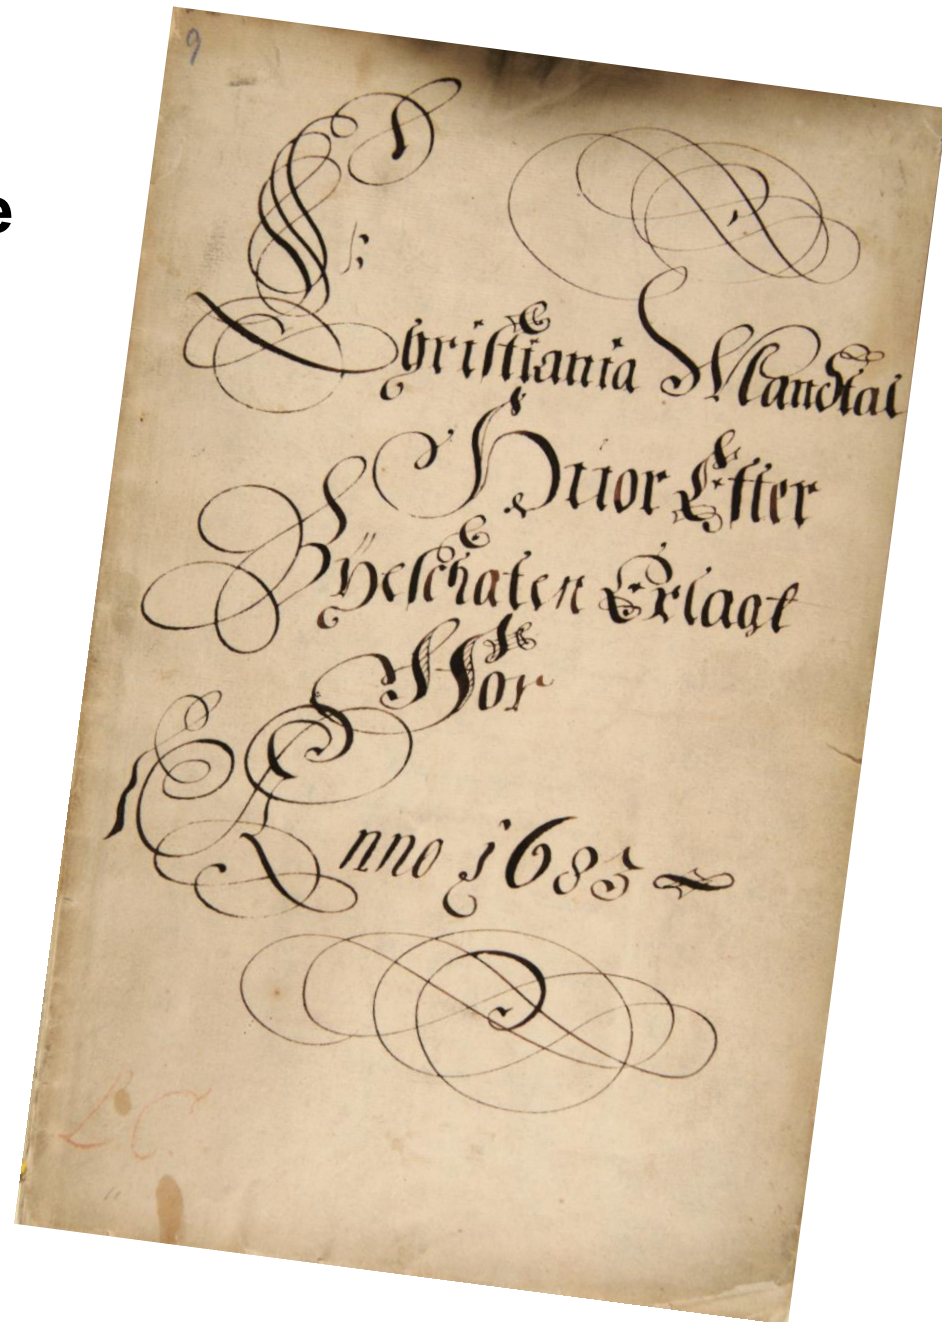 9
e
Christiania Mandtal
Huor Efter
Bÿeschaten Erlagt
For
Anno 1685
L. C.